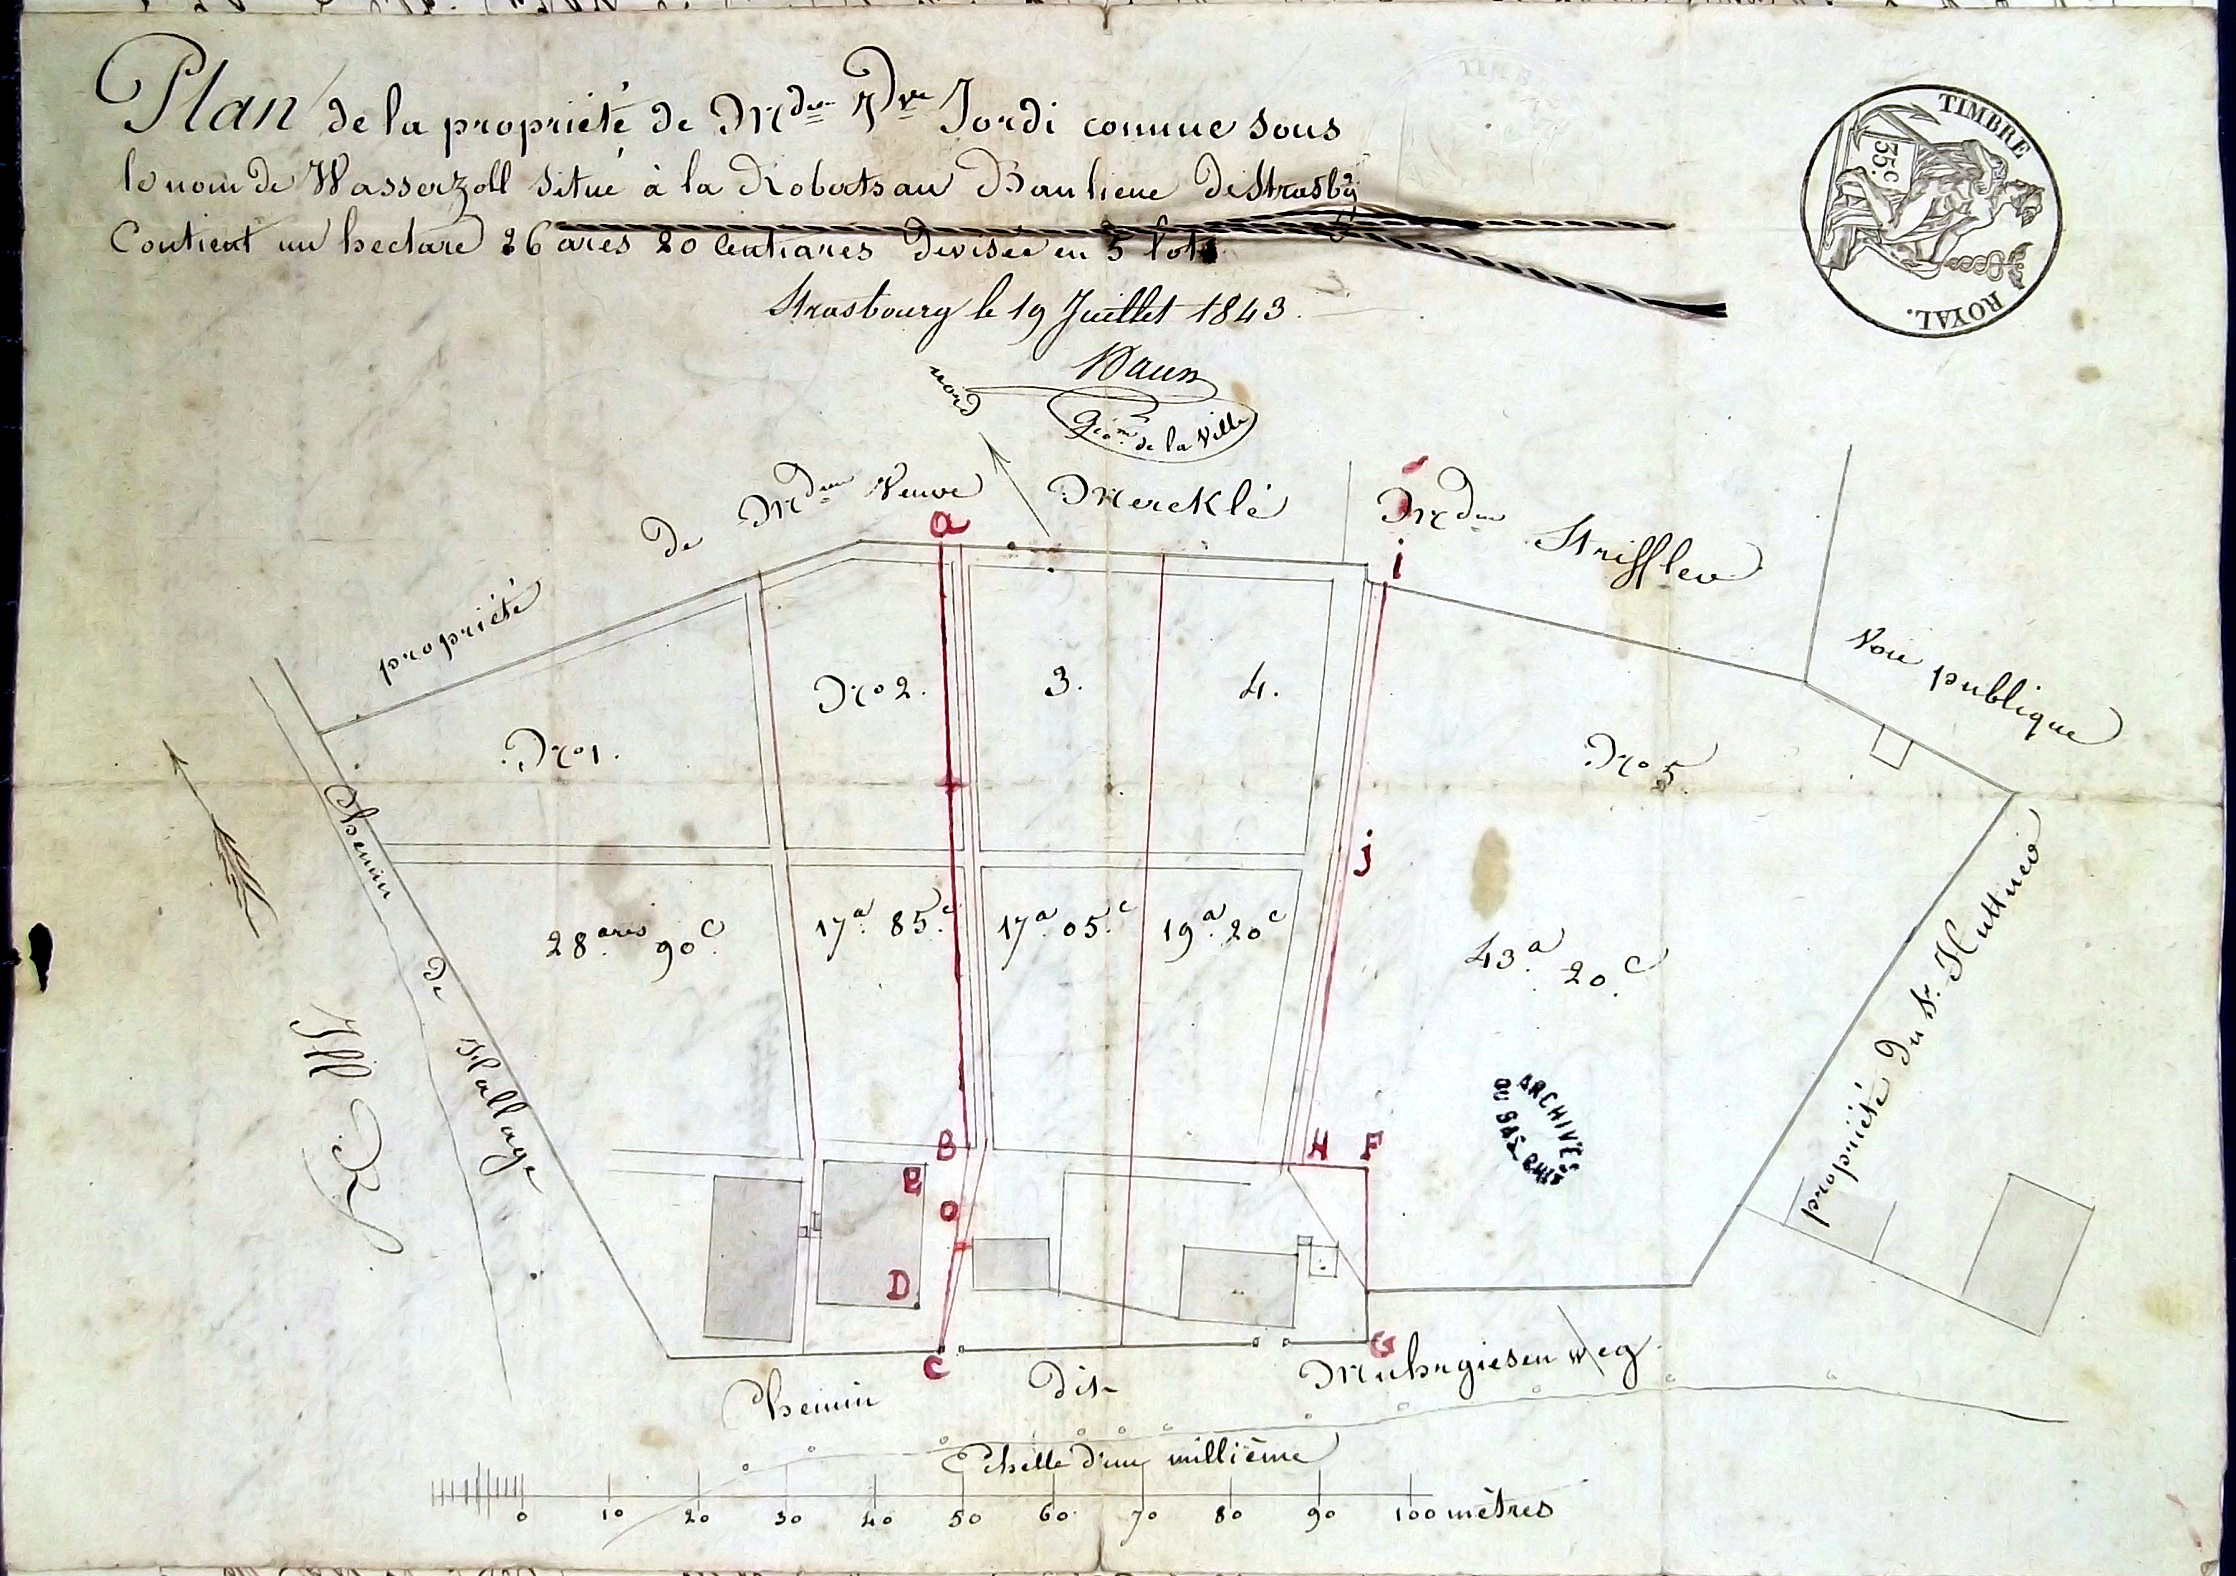 Plan de la propriété de Mdme Vve Jordi connue sous
le nom de Wasserzoll situé à la Robertsau Banlieue de Strasbg
Contient un hectare 26 ares 20 centiares devisée en 5 lots
Strasbourg le 19 Juillet 1843.
Géom. de la Ville
TIMBRE
35 c.
ROYAL.
nord
propriété de Mdme Veuve Mercklé
Mdme Striffler
Voie publique
a
i
No 1.
No 2.
3.
4.
No 5.
j
28 ares 90 c.
17 a. 85 c.
17 a. 05 c.
19 a. 20 c
43 a. 20 c.
Chemin de Hallage
Ill R.
propriété du Sr. Huttner
ARCHIVES
DU BAS-RHIN
B
H
F
E
O
D
C
G
Chemin dit Muhrgiesen weg
Echelle d'un millième
0 10 20 30 40 50 60 70 80 90 100 mètres